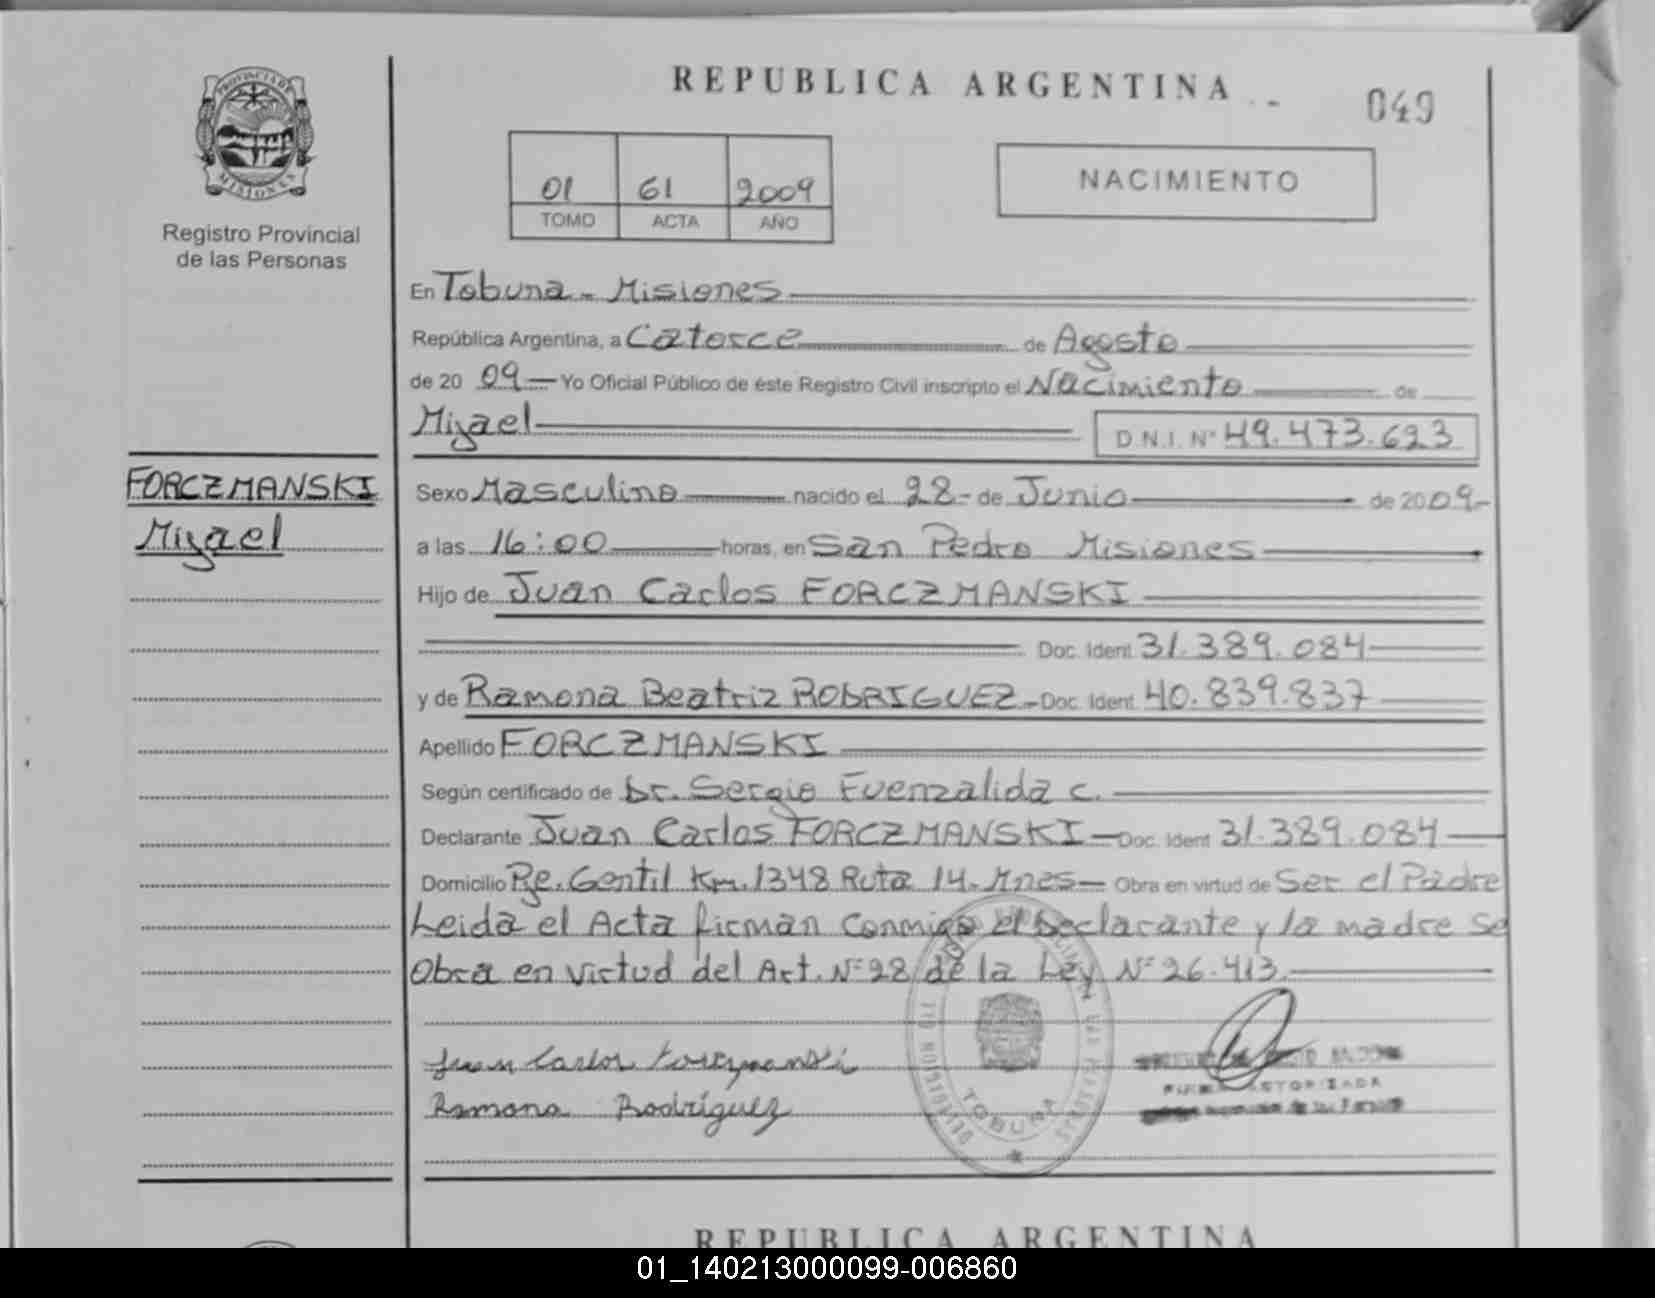 REPUBLICA ARGENTINA
049
PROVINCIA DE MISIONES
Registro Provincial
de las Personas
01 61 2009
TOMO ACTA AÑO
NACIMIENTO
En Tobuna - Misiones
República Argentina, a Catorce de Agosto
de 20 09 Yo Oficial Público de éste Registro Civil inscripto el Nacimiento de
Mizael D.N.I. N° 49.473.623
FORCZMANSKI
Mizael
Sexo Masculino nacido el 28 - de Junio de 2009-
a las 16:00 horas, en San Pedro Misiones
Hijo de Juan Carlos FORCZMANSKI
Doc. Ident. 31.389.084
y de Ramona Beatriz RODRIGUEZ - Doc. Ident. 40.839.837
Apellido FORCZMANSKI
Según certificado de Dr. Sergio Fuenzalida C.
Declarante Juan Carlos FORCZMANSKI - Doc. Ident 31.389.084
Domicilio Pje. Gentil Km. 1348 Ruta 14. Mnes - Obra en virtud de Ser el Padre
Leida el Acta firman conmigo el Declarante y la madre Se
Obra en Virtud del Art. N° 28 de la Ley N° 26.413.
Juan Carlos Forczmanski
Ramona Rodríguez
TOBUNA
REPUBLICA ARGENTINA
01_140213000099-006860